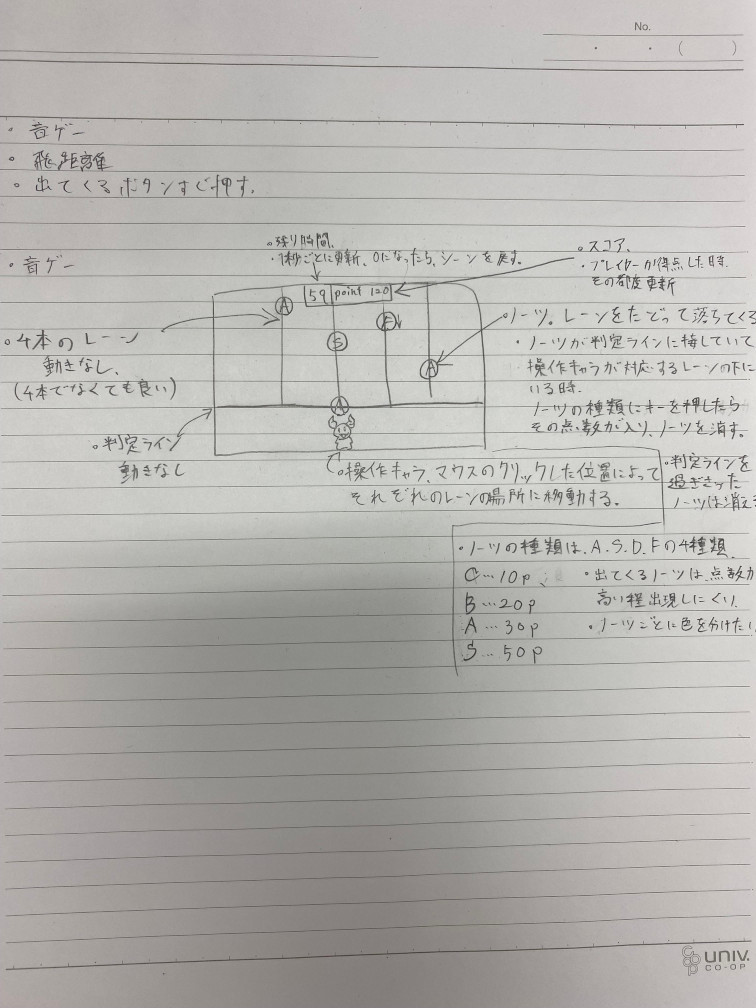 No.
・ ・ ( )
・音ゲー
・飛距離
・出てくるボタンすぐ押す。
・音ゲー
・残り時間、
・1秒ごとに更新、0になったら、シーンを戻す。
・スコア、
・プレイヤーが得点した時、
その都度更新
59 point 120
A
S
F
A
A
・4本のレーン
動きなし、
(4本でなくても良い)
・判定ライン
動きなし
・ノーツ。レーンをたどって落ちてくる
・ノーツが判定ラインに接していて
操作キャラが対応するレーンの下に
いる時、
ノーツの種類にキーを押したら
その点数が入り、ノーツを消す。
・操作キャラ、マウスのクリックした位置によって
それぞれのレーンの場所に移動する。
・判定ラインを
過ぎさった
ノーツは消え
・ノーツの種類は、A.S.D.Fの4種類
C…10p、
B…20p
A…30p
S…50p
・出てくるノーツは点数が
高い程出現しにくい、
・ノーツごとに色を分けたい
UNIV.
CO-OP